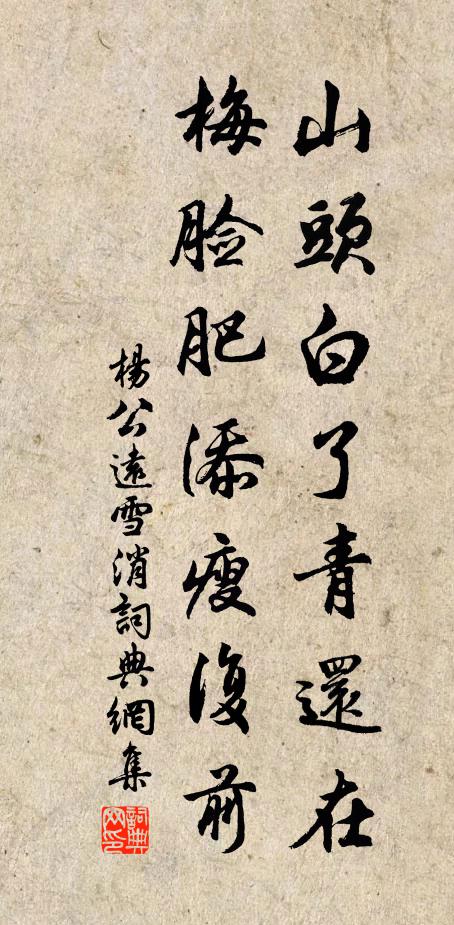 山頭白了青還在
梅臉肥添瘦復前
楊公遠雪消詞典網集
詞典网印